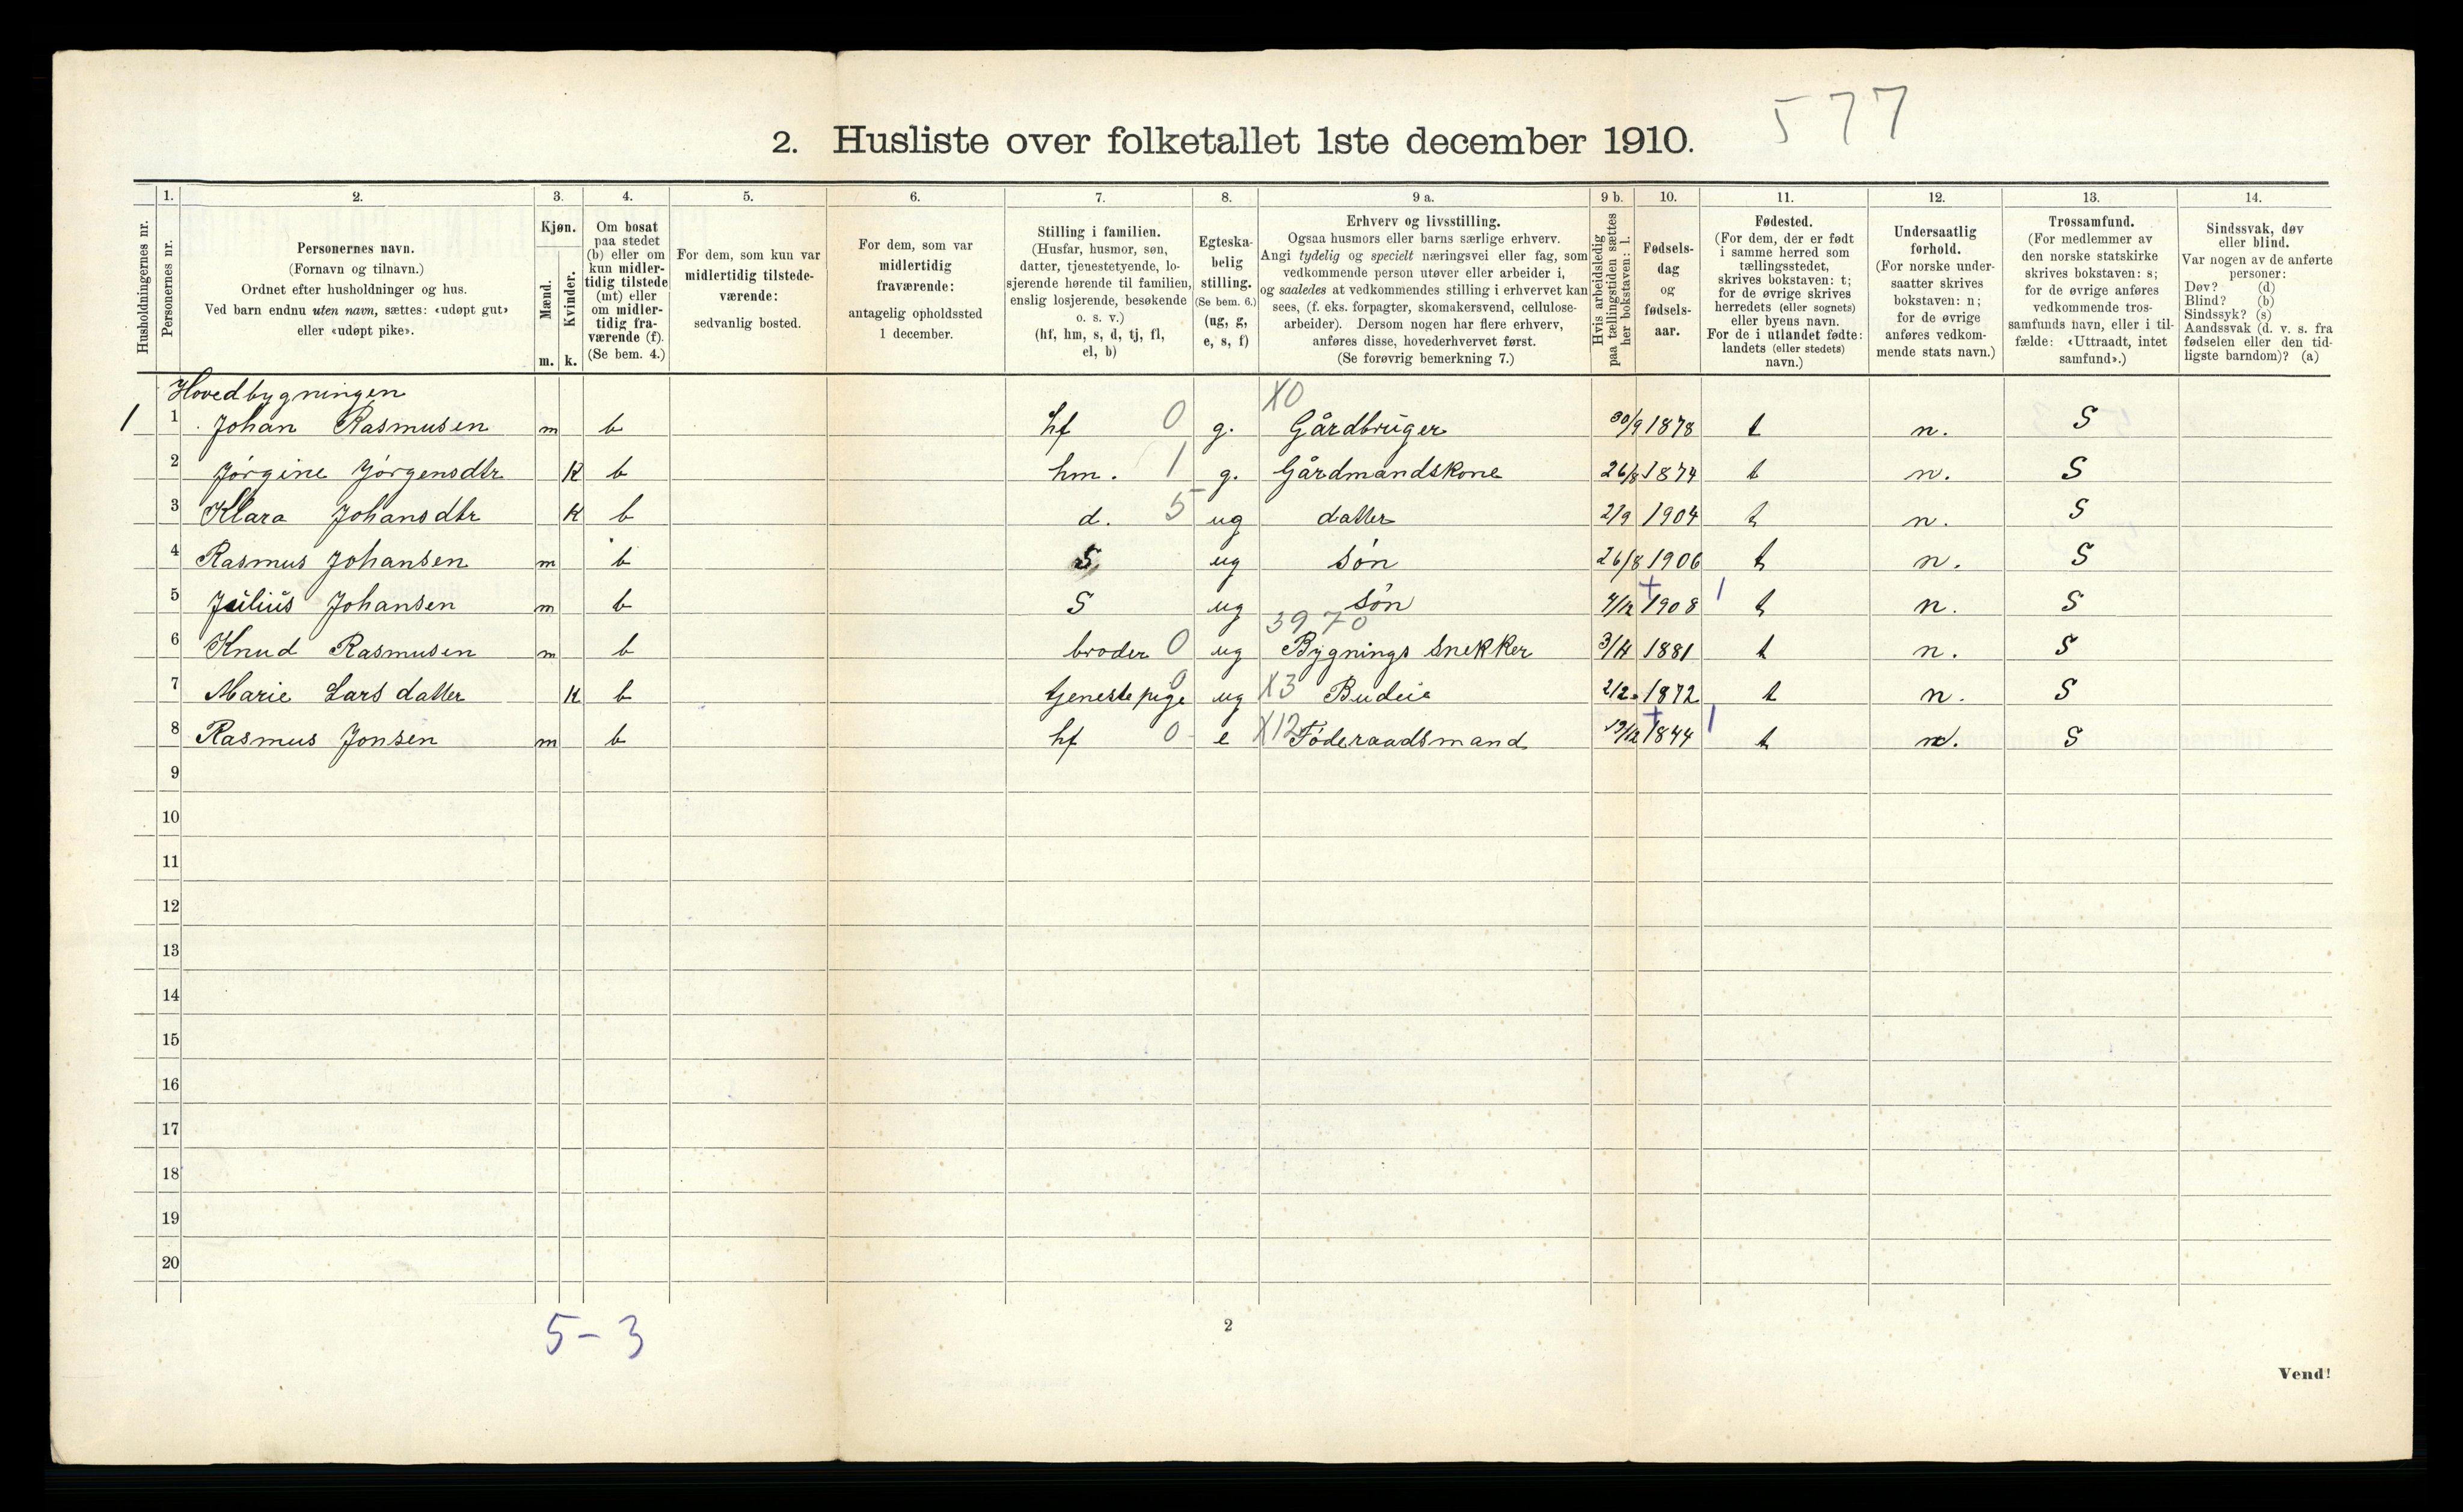 577
2. Husliste over folketallet 1ste december 1910.
Husholdningernes nr.
1.
Personernes nr.
2.
Personernes navn.
(Fornavn og tilnavn.)
Ordnet efter husholdninger og hus.
Ved barn endnu uten navn, sættes: «udøpt gut»
eller «udøpt pike».
3.
Kjøn.
Mænd.
Kvinder.
m. k.
4.
Om bosat
paa stedet
(b) eller om
kun midler-
tidig tilstede
(mt) eller
om midler-
tidig fra-
værende (f).
(Se bem. 4.)
5.
For dem, som kun var
midlertidig tilstede-
værende:
sedvanlig bosted.
6.
For dem, som var
midlertidig
fraværende:
antagelig opholdssted
1 december.
7.
Stilling i familien.
(Husfar, husmor, søn,
datter, tjenestetyende, lo-
sjerende hørende til familien,
enslig losjerende, besøkende
o. s. v.)
(hf, hm, s, d, tj, fl,
el, b)
8.
Egteska-
belig
stilling.
(Se bem. 6.)
(ug, g,
e, s, f)
9 a.
Erhverv og livsstilling.
Ogsaa husmors eller barns særlige erhverv.
Angi tydelig og specielt næringsvei eller fag, som
vedkommende person utøver eller arbeider i,
og saaledes at vedkommendes stilling i erhvervet kan
sees, (f. eks. forpagter, skomakersvend, cellulose-
arbeider). Dersom nogen har flere erhverv,
anføres disse, hovederhvervet først.
(Se forøvrig bemerkning 7.)
9 b.
Hvis arbeidsledig
paa tællingstiden sættes
her bokstaven: l.
10.
Fødsels-
dag
og
fødsels-
aar.
11.
Fødested.
(For dem, der er født
i samme herred som
tællingsstedet,
skrives bokstaven: t;
for de øvrige skrives
herredets (eller sognets)
eller byens navn.
For de i utlandet fødte:
landets (eller stedets)
navn.)
12.
Undersaatlig
forhold.
(For norske under-
saatter skrives
bokstaven: n;
for de øvrige
anføres vedkom-
mende stats navn.)
13.
Trossamfund.
(For medlemmer av
den norske statskirke
skrives bokstaven: s;
for de øvrige anføres
vedkommende tros-
samfunds navn, eller i til-
fælde: «Uttraadt, intet
samfund».)
14.
Sindssvak, døv
eller blind.
Var nogen av de anførte
personer:
Døv? (d)
Blind? (b)
Sindssyk? (s)
Aandssvak (d. v. s. fra
fødselen eller den tid-
ligste barndom)? (a)
Hovedbygningen X0
1 1 Johan Rasmusen m b hf 0 g. Gårdbruger 30/9 1878 t n. S
2 Jörgine Jörgensdtr K b hm. 1 g. Gårdmandskone 26/8 1874 t n. S
3 Klara Johansdtr K b d. 5 ug datter 2/9 1904 t n. S
4 Rasmus Johansen m b S ug sön 26/8 1906 t n. S
5 Julius Johansen m b S ug sön 4/12 1908 1 t n. S
3970
6 Knud Rasmusen m b broder 0 ug Bygnings snekker 3/4 1881 t n. S
7 Marie Larsdatter K b tjenestepige 0 ug X3 Budeie 2/2 1872 t n. S
8 Rasmus Jonsen m b hf 0 e X12 Föderaadsmand 19/12 1844 1 t n. S
9
10
11
12
13
14
15
16
17
18
19
20
5-3
2
Vend!